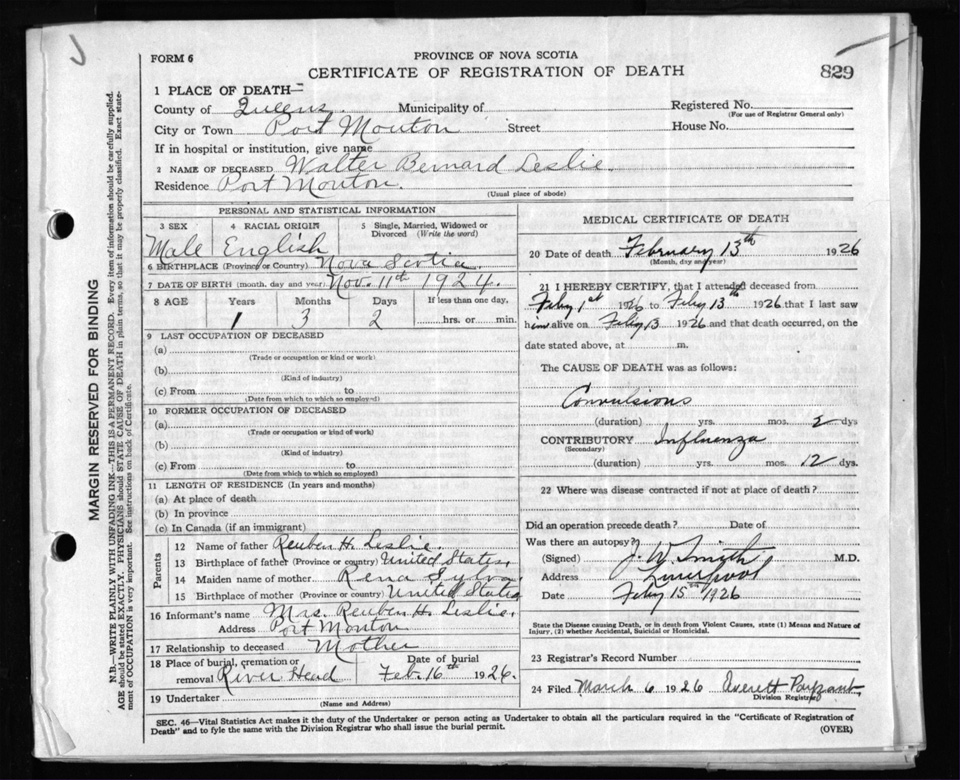 FORM 6
PROVINCE OF NOVA SCOTIA
CERTIFICATE OF REGISTRATION OF DEATH
829
1 PLACE OF DEATH—
County of Queens. Municipality of
Registered No.
(For use of Registrar General only)
City or Town Port Mouton Street House No.
If in hospital or institution, give name
2 NAME OF DECEASED Walter Bernard Leslie.
Residence Port Mouton.
(Usual place of abode)
PERSONAL AND STATISTICAL INFORMATION
3 SEX 4 RACIAL ORIGIN 5 Single, Married, Widowed or Divorced (Write the word)
Male English
6 BIRTHPLACE (Province or Country) Nova Scotia.
7 DATE OF BIRTH (month, day and year) Nov. 11th 1924.
8 AGE Years Months Days If less than one day,
1 3 2 hrs. or min.
9 LAST OCCUPATION OF DECEASED
(a)
(Trade or occupation or kind or work)
(b)
(Kind of industry)
(c) From to
(Date from which to which so employed)
10 FORMER OCCUPATION OF DECEASED
(a)
(Trade or occupation or kind of work)
(b)
(Kind of industry)
(c) From to
(Date from which to which so employed)
11 LENGTH OF RESIDENCE (In years and months)
(a) At place of death
(b) In province
(c) In Canada (if an immigrant)
Parents
12 Name of father Reuben H. Leslie.
13 Birthplace of father (Province or country) United States.
14 Maiden name of mother Rena Sylva.
15 Birthplace of mother (Province or country) United States
16 Informant's name Mrs. Reuben H. Leslie.
Address Port Mouton
17 Relationship to deceased Mother
18 Place of burial, cremation or removal River Head
Date of burial Feb. 16th 1926.
19 Undertaker
(Name and Address)
MEDICAL CERTIFICATE OF DEATH
20 Date of death February 13th 1926
(Month, day and year)
21 I HEREBY CERTIFY, that I attended deceased from
Feby 1st 1926 to Feby 13th 1926 that I last saw
him alive on Feby 13 1926 and that death occurred, on the
date stated above, at m.
The CAUSE OF DEATH was as follows:
Convulsions
(duration) yrs. mos. 2 dys
CONTRIBUTORY Influenza
(Secondary)
(duration) yrs. mos. 12 dys.
22 Where was disease contracted if not at place of death?
Did an operation precede death? Date of
Was there an autopsy?
(Signed) J. W. Smith M.D.
Address Liverpool
Date Feby 15th 1926
State the Disease causing Death, or in death from Violent Causes, state (1) Means and Nature of
Injury, (2) whether Accidental, Suicidal or Homicidal.
23 Registrar's Record Number
24 Filed March 6 1926 Everett
Division Registrar
SEC. 46—Vital Statistics Act makes it the duty of the Undertaker or person acting as Undertaker to obtain all the particulars required in the "Certificate of Registration of
Death" and to fyle the same with the Division Registrar who shall issue the burial permit. (OVER)
MARGIN RESERVED FOR BINDING
N.B.—WRITE PLAINLY WITH UNFADING INK—THIS IS A PERMANENT RECORD. Every item of information should be carefully supplied.
AGE should be stated EXACTLY. PHYSICIANS should STATE CAUSE OF DEATH in plain terms, so that it may be properly classified. Exact state-
ment of OCCUPATION is very important. See instructions on back of Certificate.